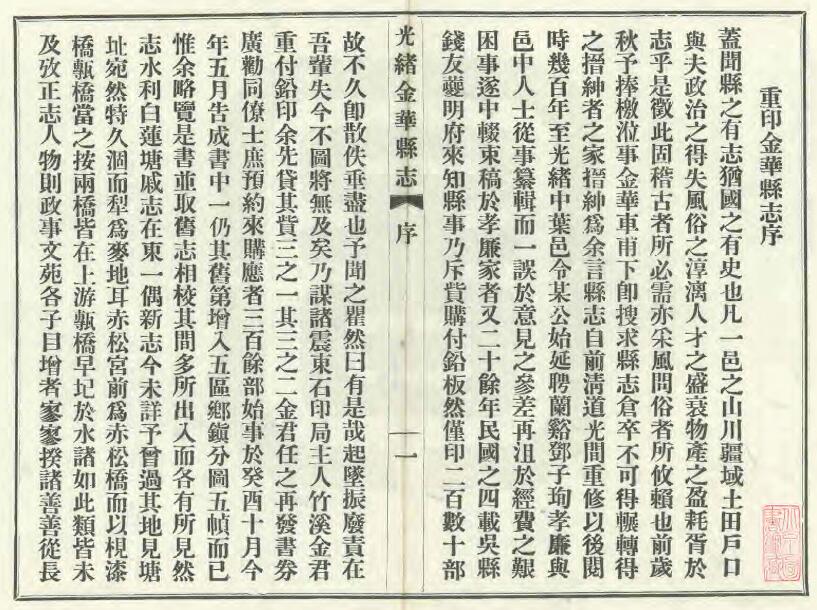 重印金華縣志序
蓋聞縣之有志猶國之有史也凡一邑之山川疆域土田戶口
與夫政治之得失風俗之淳漓人才之盛衰物產之盈耗胥於
志乎是徵此固稽古者所必需亦采風問俗者所攸賴也前歲
秋予捧檄涖事金華車甫下卽搜求縣志倉卒不可得輾轉得
之搢紳者之家搢紳為余言縣志自前清道光間重修以後閱
時幾百年至光緒中葉邑令某公始延聘蘭谿鄧子珣孝廉與
邑中人士從事纂輯而一誤於意見之參差再沮於經費之艱
困事遂中輟束稿於孝廉家者又二十餘年民國之四載吳縣
錢友夔明府來知縣事乃斥貲購付鉛板然僅印二百數十部
光緒金華縣志
序
一
故不久卽散佚垂盡也予聞之瞿然曰有是哉起墜振廢責在
吾輩失今不圖將無及矣乃謀諸震東石印局主人竹溪金君
重付鉛印余先貸其貲三之一其三之二金君任之再發書券
廣勸同僚士庶預約來購應者三百餘部始事於癸酉十月今
年五月告成書中一仍其舊第增入五區鄉鎭分圖五幀而已
惟余略覽是書並取舊志相校其間多所出入而各有所見然
志水利白蓮塘戚志在東一偶新志今未詳予曾過其地見塘
址宛然特久涸而犁為麥地耳赤松宮前為赤松橋而以梘漆
橋甎橋當之按兩橋皆在上游甎橋早圮於水諸如此類皆未
及攷正志人物則政事文苑各子目增者寥寥揆諸善善從長